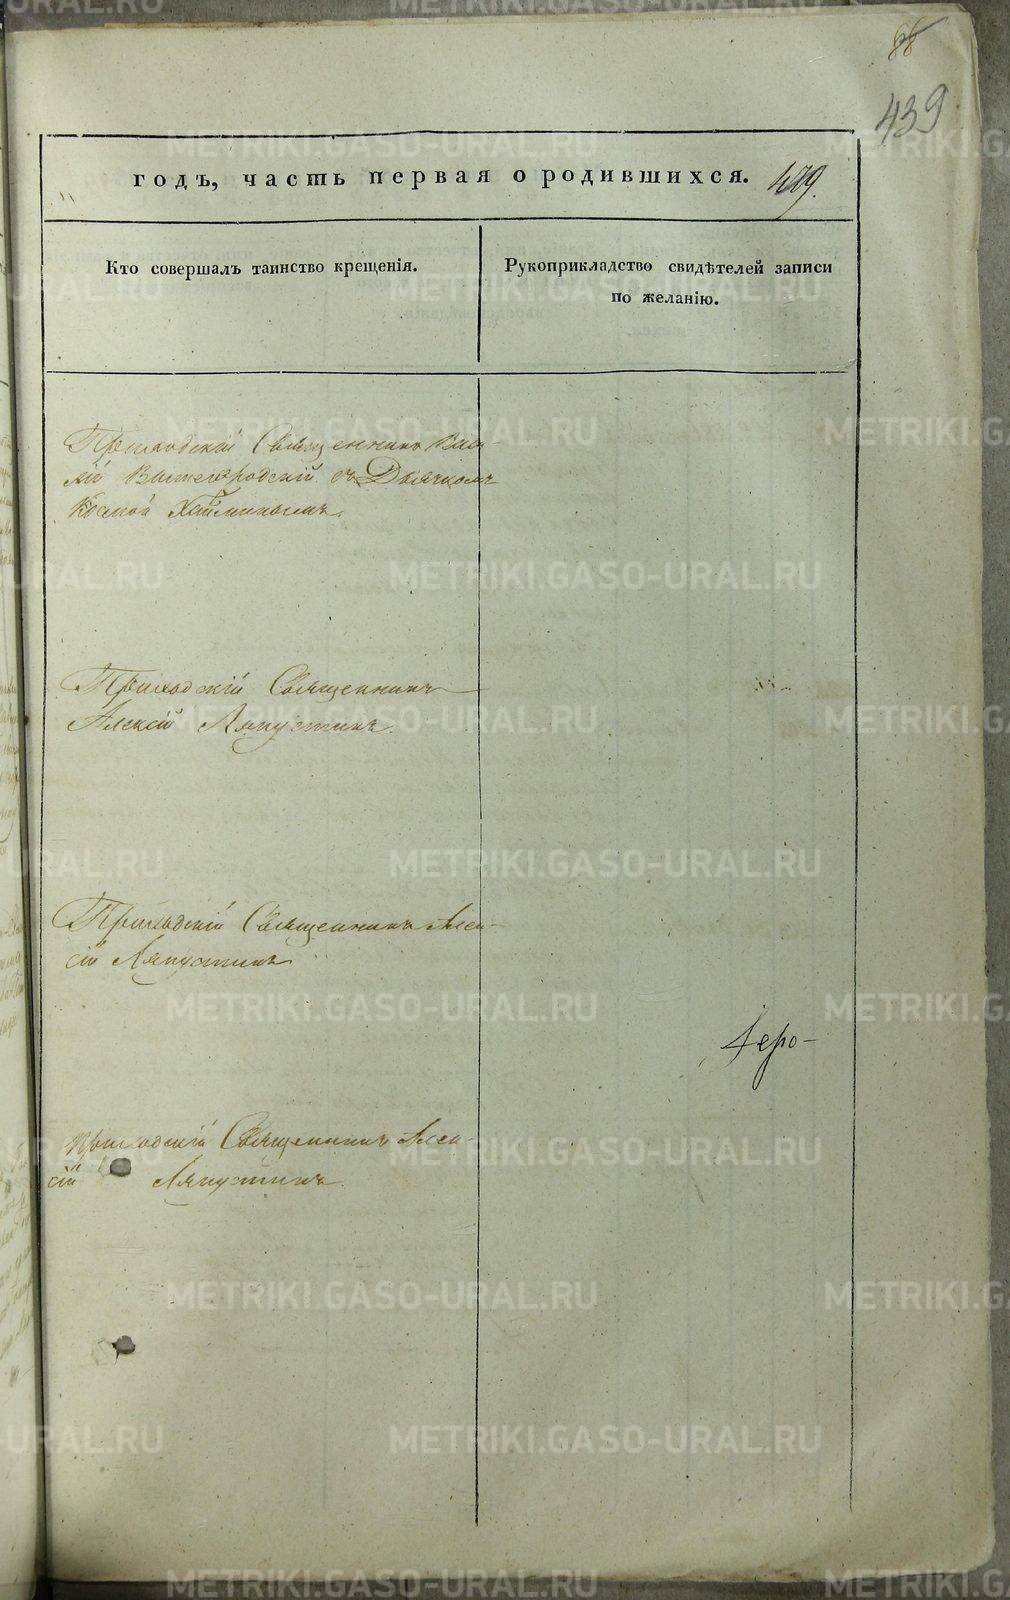 68
439
годъ, часть первая о родившихся. 479.
Кто совершалъ таинство крещенія.
Рукоприкладство свидѣтелей записи
по желанію.
Приходскій Священникъ Васи-
лій Вышегородскій съ Дьячкомъ
Космой
Приходскій Священникъ
Алексій Ляпустинъ.
Приходскій Священникъ Алек-
сій Ляпустинъ
Iеро-
Приходскій Священникъ Алек-
сій Ляпустинъ.
METRIKI.GASO-URAL.RU